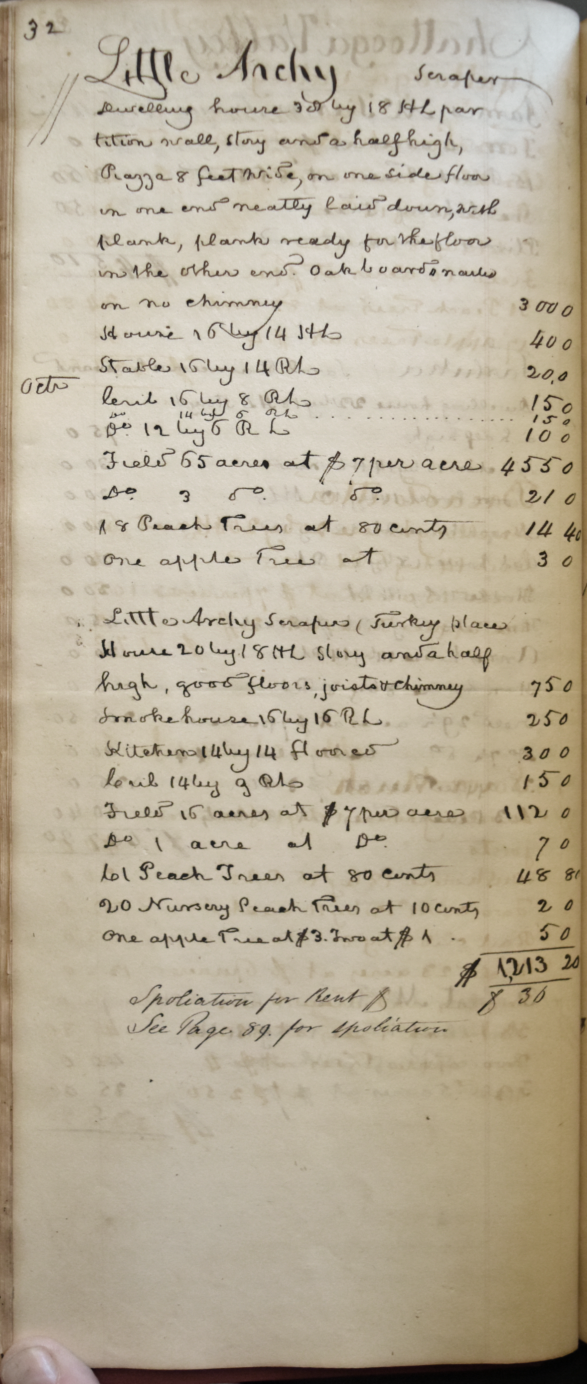 32
Little Archy Scraper
Dwelling house 38 by 18 HL par
tition wall, story and a half high,
Piazza 8 feet wide, on one side floor
in one end neatly laid down, with
plank, plank ready for the floor
in the other end. Oak boards nailed
on no chimney 300 0
House 16 by 14 HL 40 0
Stable 16 by 14 RL 20, 0
Octr
Crib 16 by 8 RL 15 0
Do 14 by 6 RL 15 0
Do 12 by 6 RL 10 0
Field 65 acres at $7 per acre 455 0
Do 3 do. do. 21 0
18 Peach Trees at 80 cents 14 40
One apple Tree at 3 0
Little Archy Scraper (Turkey place
House 20 by 18 HL Story and a half
high, good floors, joists & chimney 75 0
Smoke house 16 by 16 RL 25 0
Kitchen 14 by 14 floored 30 0
Crib 14 by 9 RL 15 0
Field 16 acres at $7 per acre 112 0
Do 1 acre at Do. 7 0
61 Peach Trees at 80 cents 48 80
20 Nursery Peach Trees at 10 cents 2 0
One apple Tree at $3. Two at $1. 5 0
$ 1,213 20
Spoliation for Rent $ $ 30
See Page 89. for spoliation